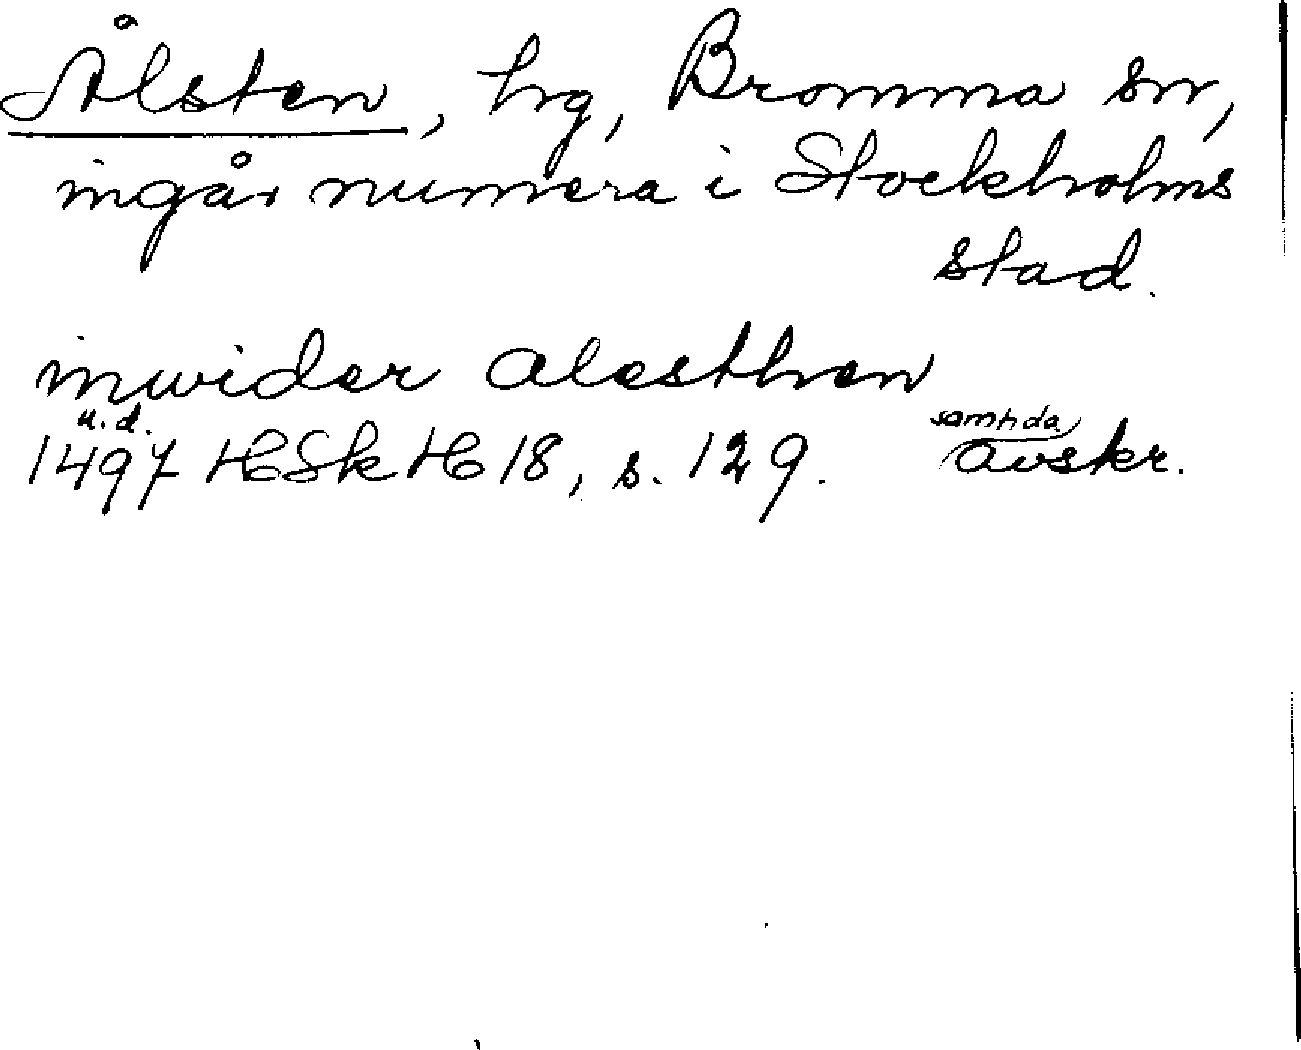 Ålsten, hg, Bromma sn,
ingår numera i Stockholms
stad.
inwider alesthen
u.d.
1497 HSkH 18, s. 129. samtida avskr.